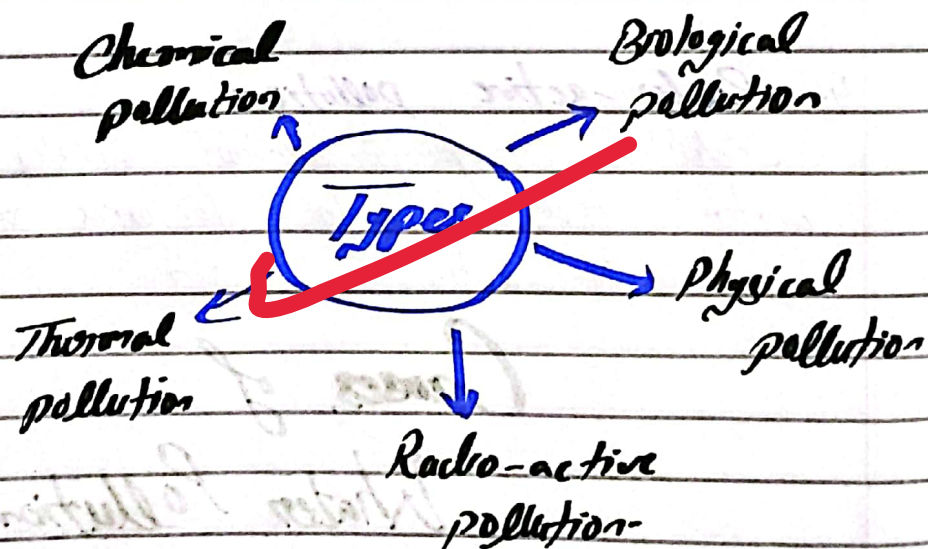 Chemical
pollution
Biological
pollution
Types
Physical
pollution
Thermal
pollution
Radio-active
pollution